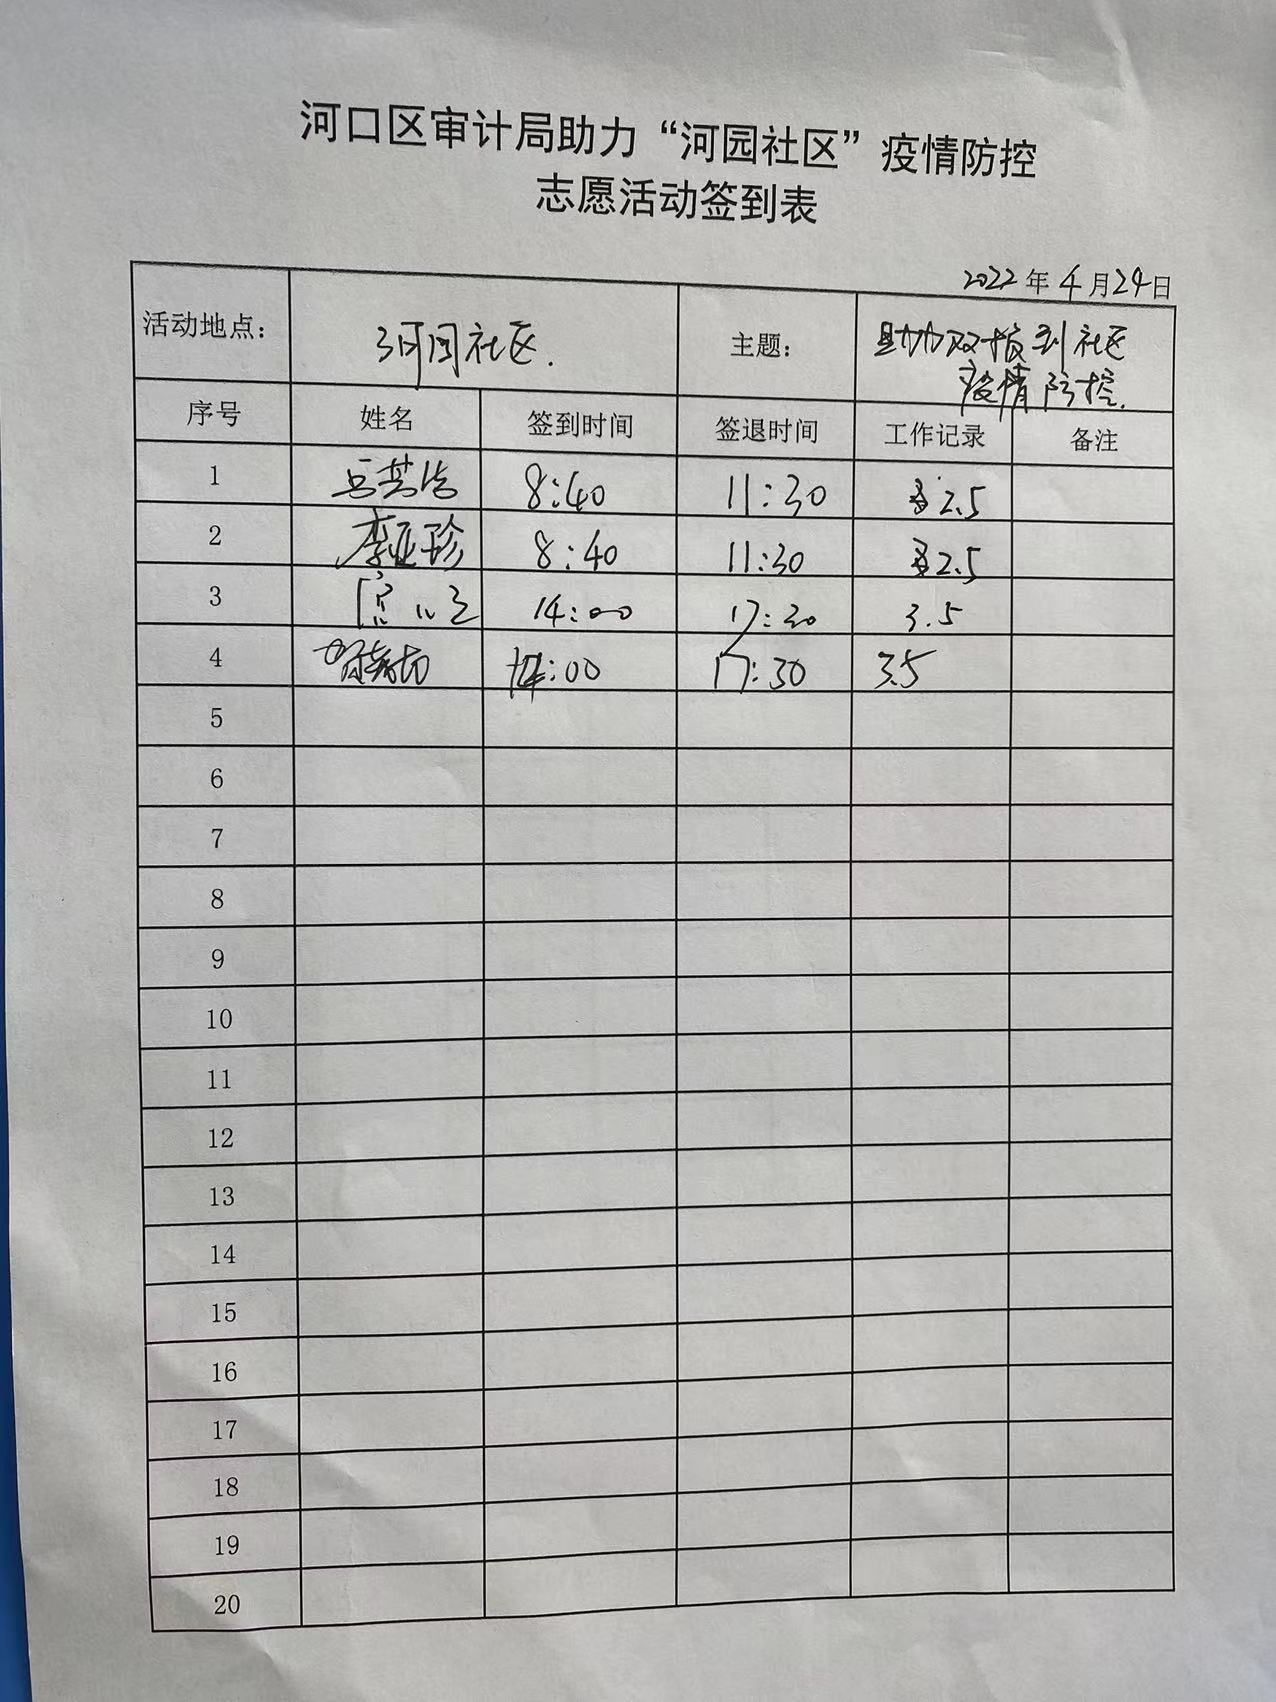 河口区审计局助力“河园社区”疫情防控
志愿活动签到表
2022年4月24日
活动地点： 河园社区. 主题： 助力双报到社区
疫情防控.
序号 姓名 签到时间 签退时间 工作记录 备注
1 8:40 11:30 2.5
2 李亚珍 8:40 11:30 2.5
3 14:00 17:30 3.5
4 14:00 17:30 3.5
5
6
7
8
9
10
11
12
13
14
15
16
17
18
19
20